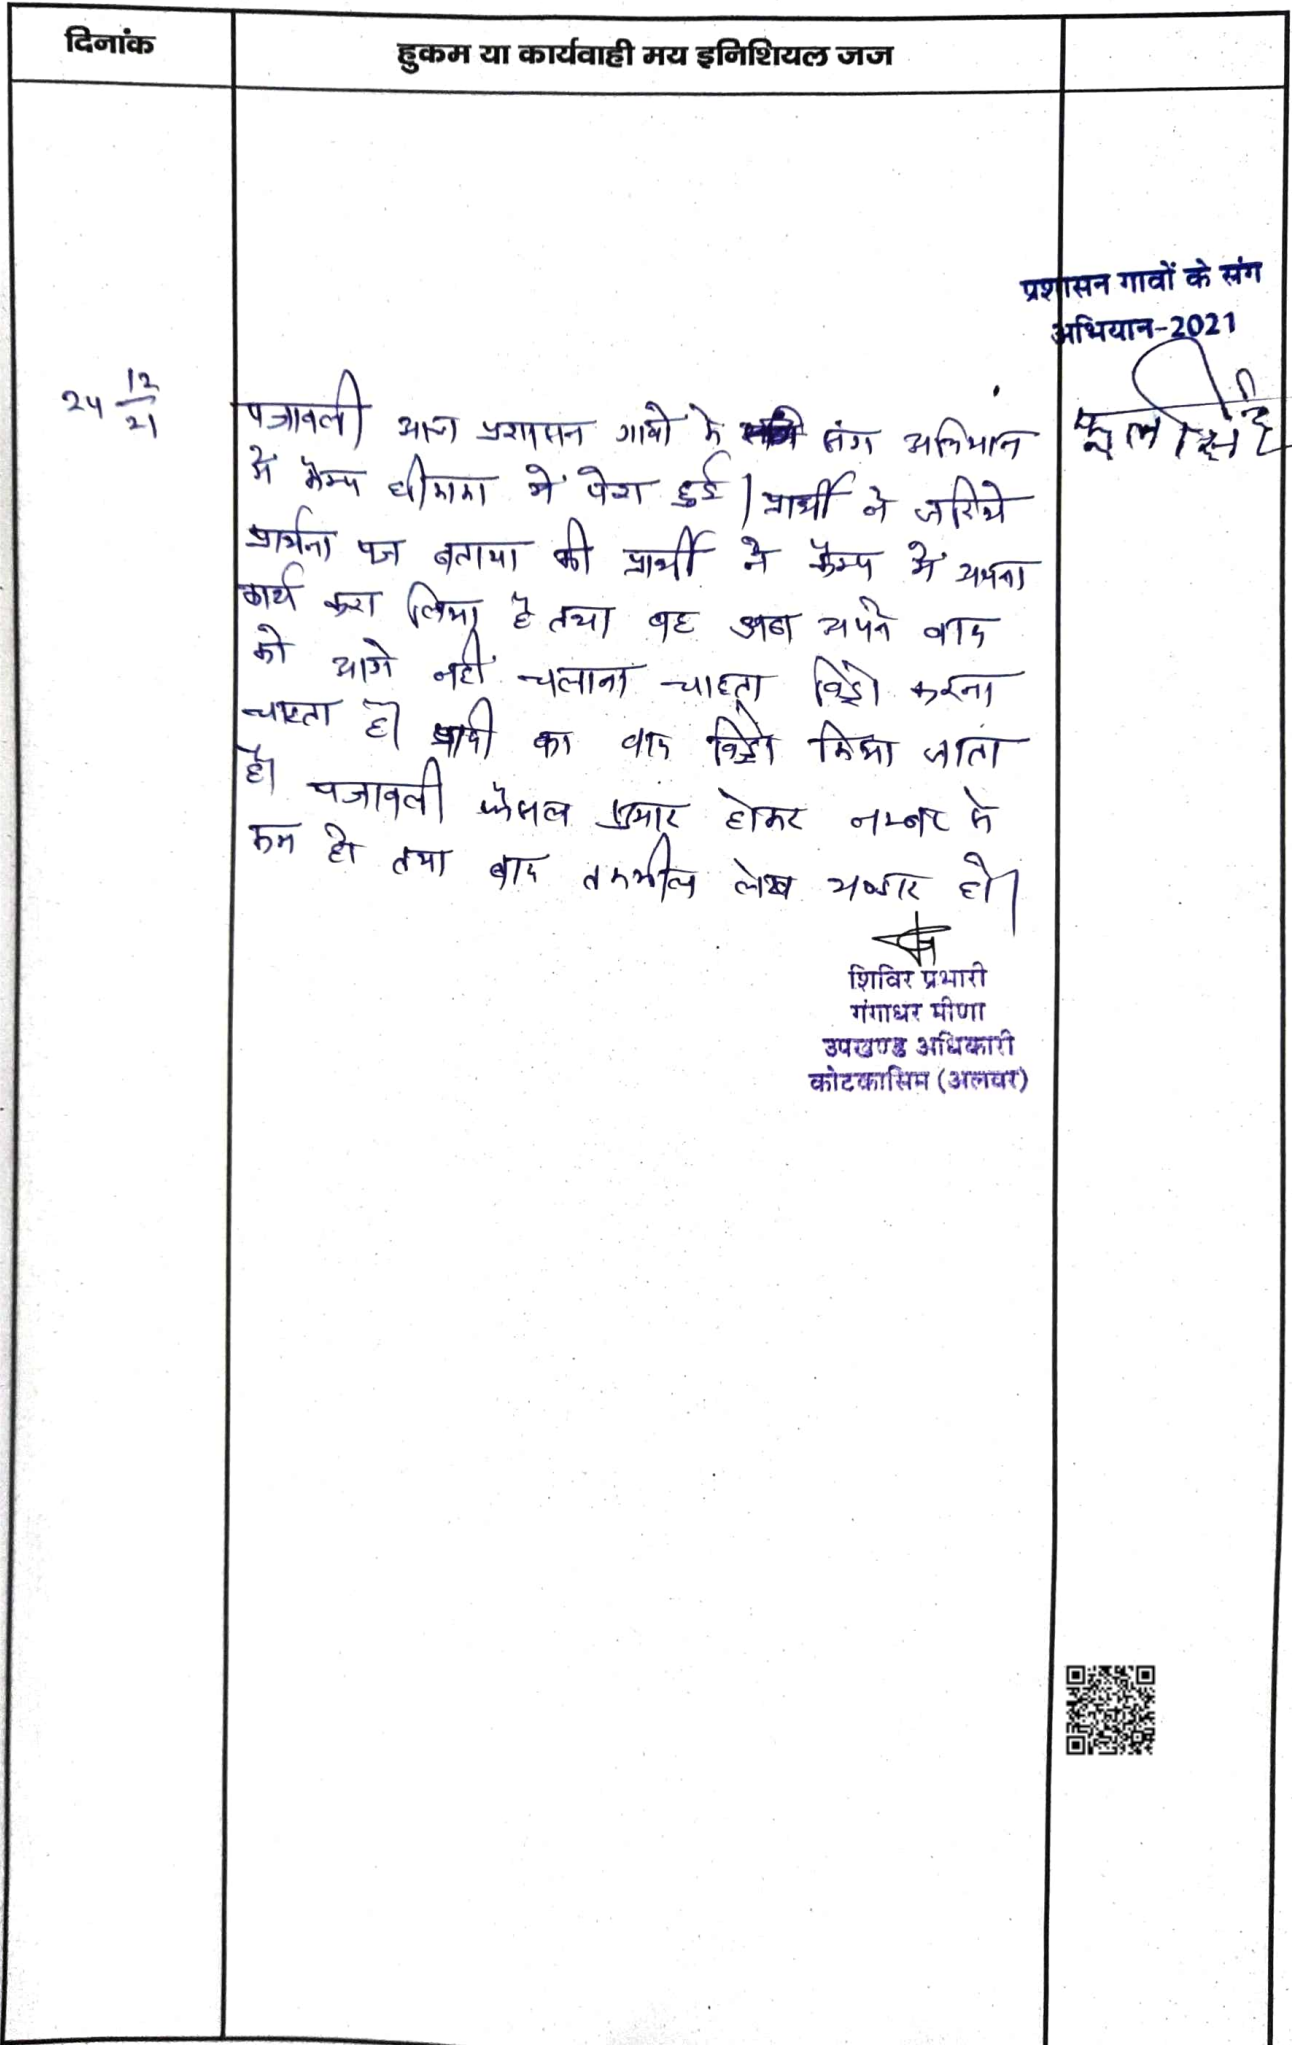 दिनांक
हुकम या कार्यवाही मय इनिशियल जज
प्रशासन गावों के संग
अभियान-2021
24 12/21
पत्रावली आज प्रशासन गावों के संग अभियान
में कैम्प में पेश हुई। प्रार्थी ने जरिये
प्रार्थना पत्र बताया की प्रार्थी ने कैम्प में अपना
कार्य करा लिया है तथा वह अब अपने वाद
को आगे नहीं चलाना चाहता विड्रो करना
चाहता है। का वाद विड्रो किया जाता
है। पत्रावली फैसल शुमार होकर नम्बर से
कम हो तथा बाद तकमील लेख भण्डार हो।
शिविर प्रभारी
गंगाधर मीणा
उपखण्ड अधिकारी
कोटकासिम (अलवर)